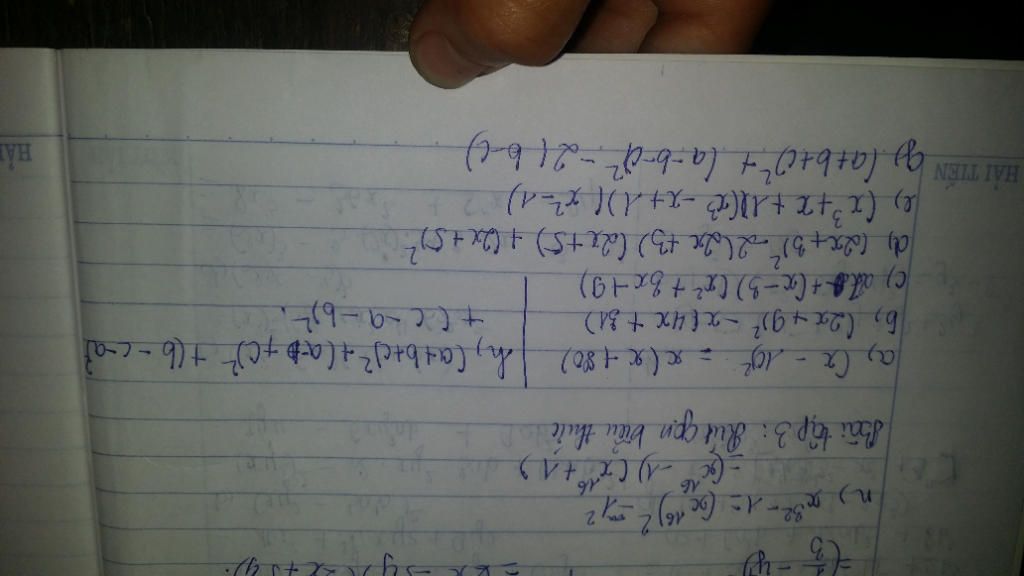 = (1/3 - y²) = (2x - 5y)(2x + 5y).
n) x³² - 1 = (x¹⁶)² - 1²
= (x¹⁶ - 1)(x¹⁶ + 1)
Bài tập 3: Rút gọn biểu thức
a, (x - 10)² = x(x + 80)
b, (2x + 9)² - x(4x + 31)
c, + (x - 3)(x² + 3x + 9)
d, (2x + 3)² - 2(2x + 3)(2x + 5) + (2x + 5)²
e, (x³ + x + 1)(x³ - x + 1)(x² - 1)
g) (a + b + c)² + (a - b - c)² - 2(b - c)
h, (a + b + c)² + (a - b + c)² + (b - c - a)²
+ (c - a - b)².
HẢI TIẾN
HẢI